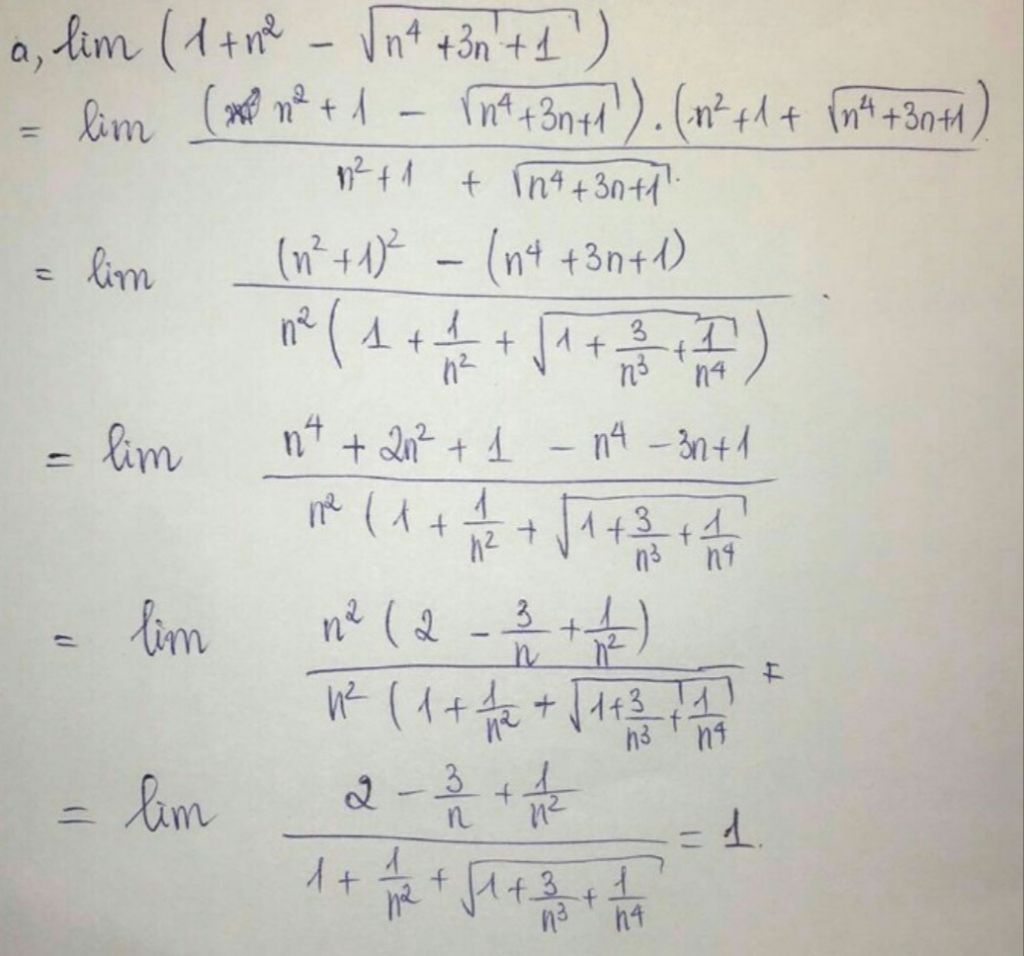 a, lim (1 + n² − √(n⁴ + 3n + 1))
= lim ((n² + 1 − √(n⁴ + 3n + 1)) . (n² + 1 + √(n⁴ + 3n + 1))) / (n² + 1 + √(n⁴ + 3n + 1))
= lim ((n² + 1)² − (n⁴ + 3n + 1)) / (n² (1 + 1/n² + √(1 + 3/n³ + 1/n⁴))) .
= lim (n⁴ + 2n² + 1 − n⁴ − 3n + 1) / (n² (1 + 1/n² + √(1 + 3/n³ + 1/n⁴)
= lim (n² (2 − 3/n + 1/n²)) / (n² (1 + 1/n² + √(1 + 3/n³ + 1/n⁴) =
= lim (2 − 3/n + 1/n²) / (1 + 1/n² + √(1 + 3/n³ + 1/n⁴)) = 1.